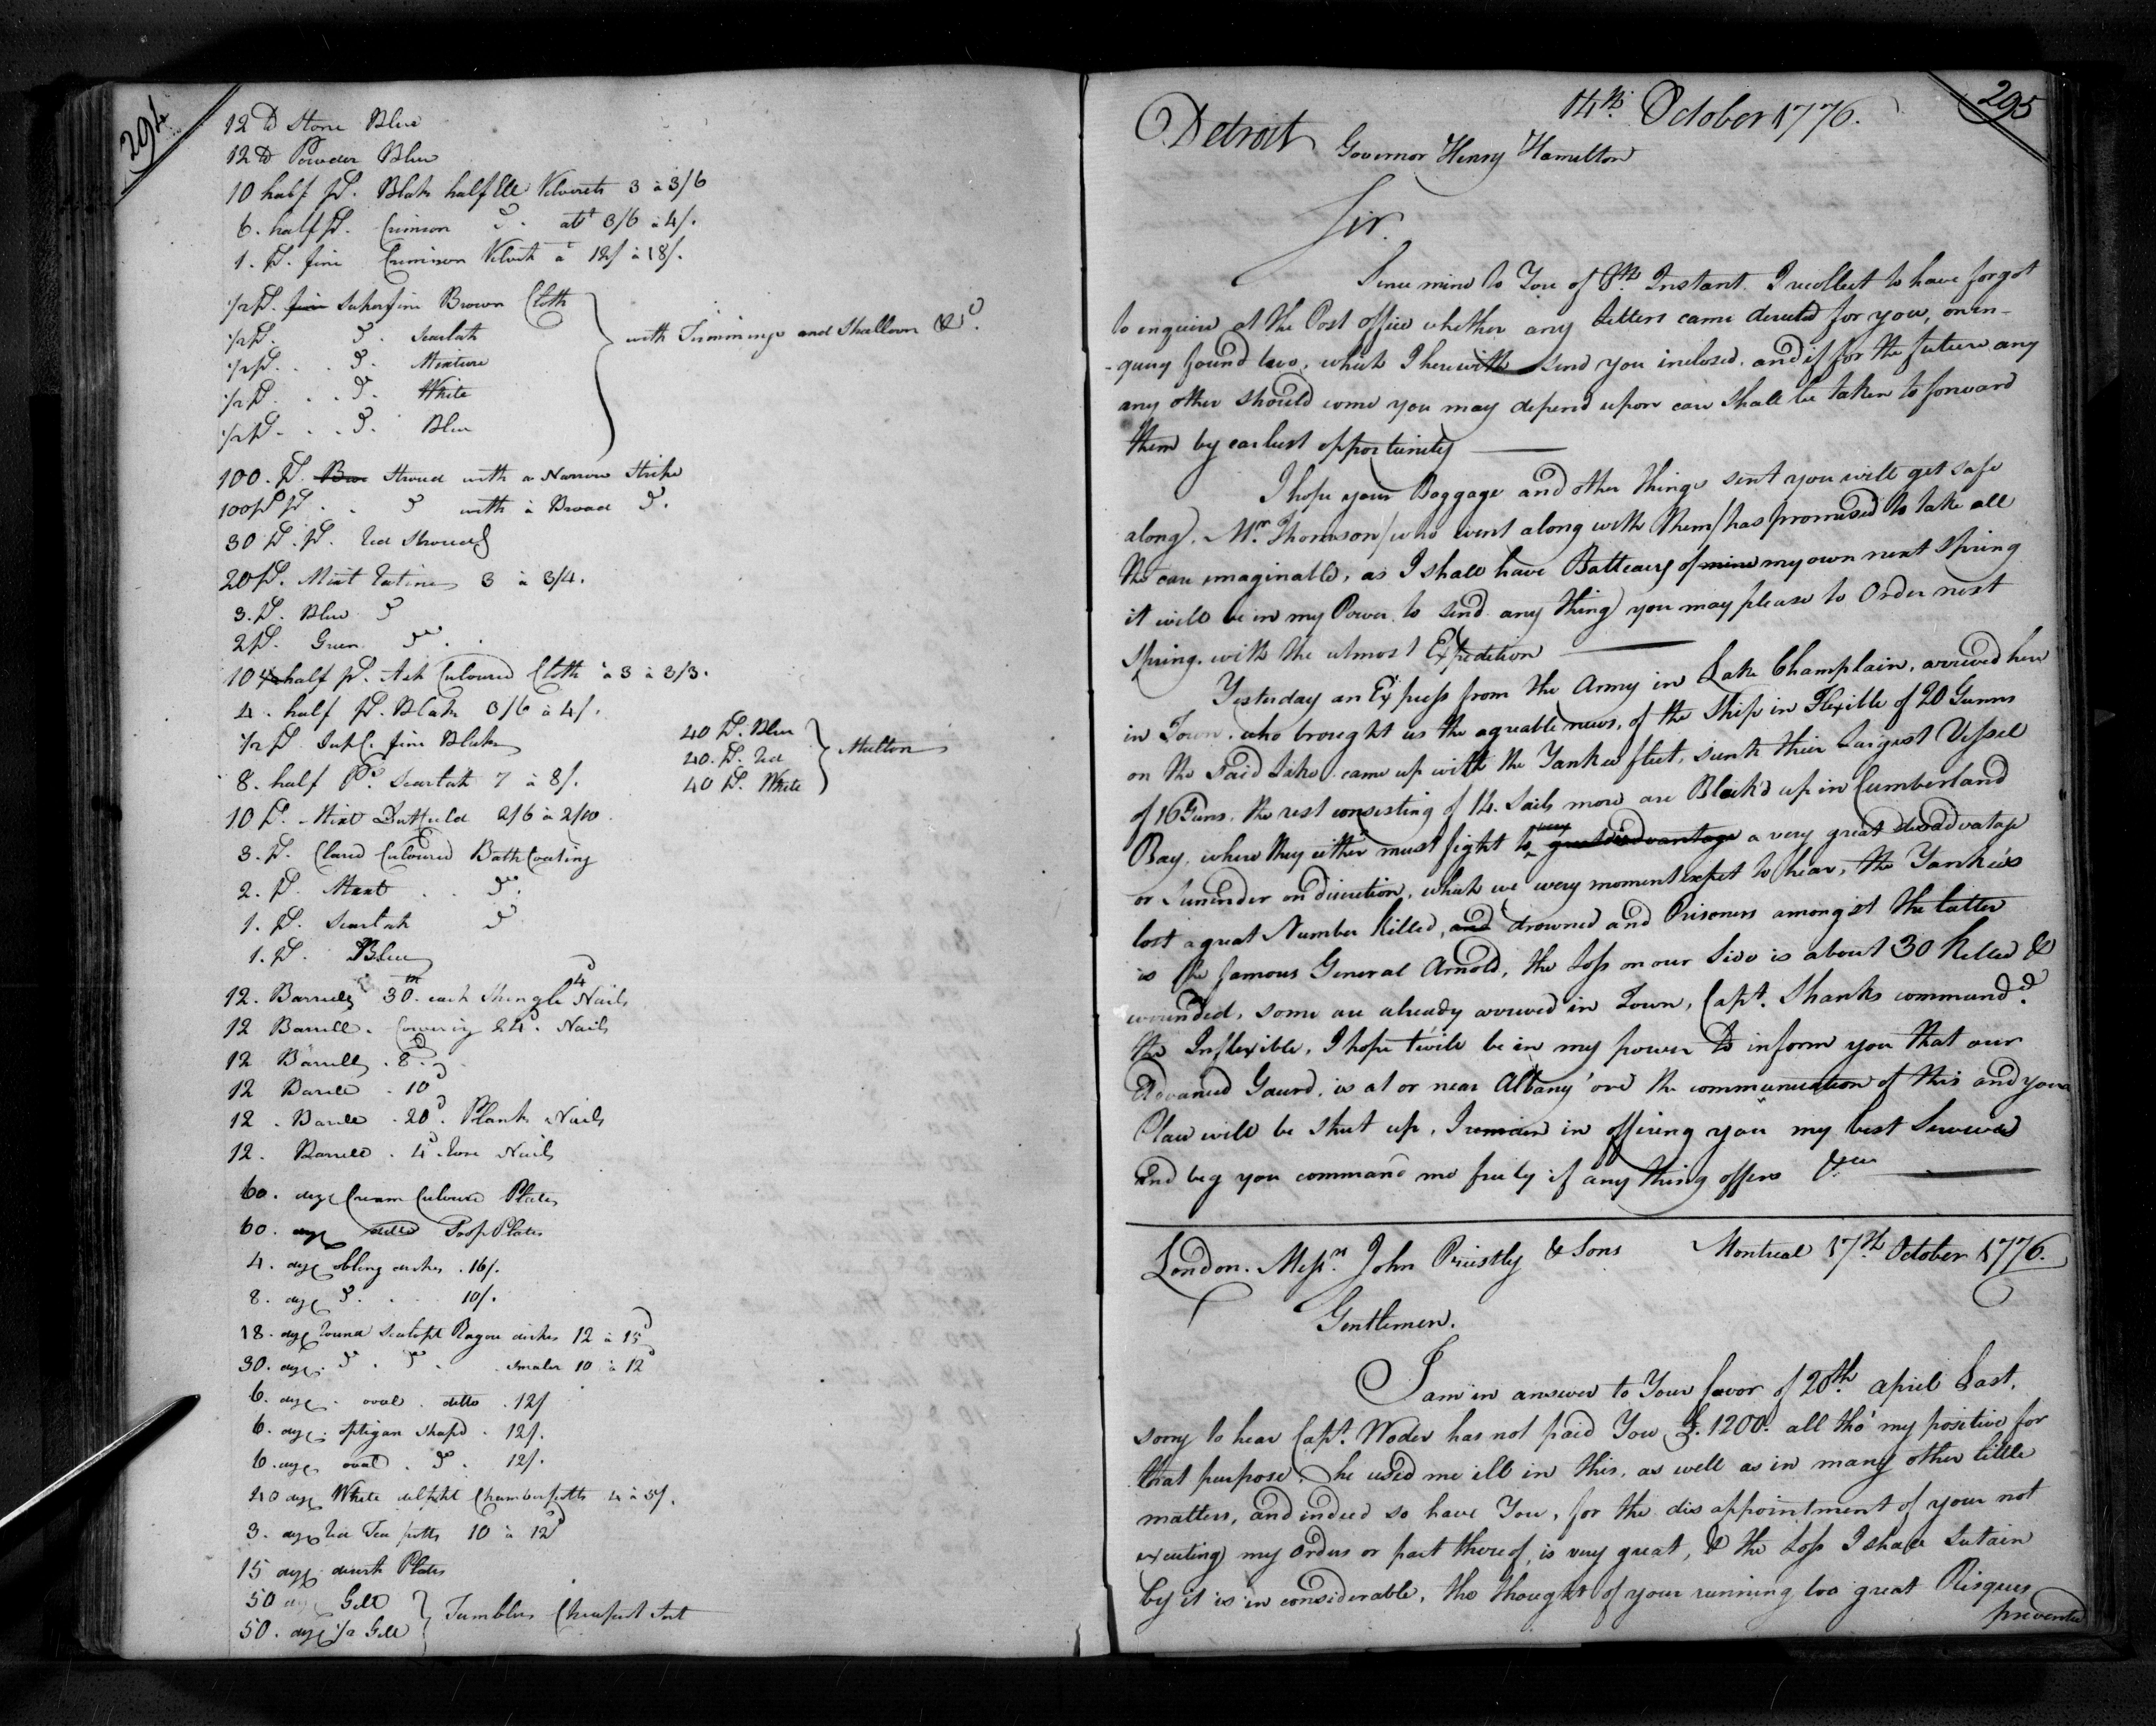 294
12 lb Stone Blue
12 lb Powder Blue
10 half ps. Black half Ell Velverets 3 à 3/6
6. half ps. Crimson Do. att 3/6 à 4/.
1. ps. fine Crimison Velvet à 12/ à 18/.
1/2 ps. fine Superfine Brown Cloth
1/2 ps. Do. Scarlett
1/2 ps. . . Do. Mixture
1/2 ps. . . Do. White
1/2 ps. . . Do. Blue
with Trimmings and Shalloon &c.
100. ps. Stroud with a Narrow Stripe
100 ps. . . Do with à Broad Do.
30 ps. Red Strouds
20 ps. Mixt Ratines 3 à 3/4.
3. ps. Blue Do
2 ps. Green Do.
10 half ps. Ash Culoured Cloth à 3 à 3/3.
4. half ps. Black 3/6 à 4/.
1/2 ps. Supl. fine Black
8. half ps. Scarlett 7 à 8/.
40 ps. Blue
40. ps. Red
40 ps. White
Multon
10 ps. Mixt 2/6 à 2/10.
3. ps. Clared Culoured Bath Coating
2. ps. Mixt . . Do.
1. ps. Scarlett Do
1. ps. Blue
12. Barrells 30m. each Shingle 4d Nails
12 Barrells. Covering 24d. Nails
12 Barrells . 8d.
12 Barrell . 10d
12. Barrell . 20d. Plank Nails
12. Barrell . 4d. Nails
60. doz Cream Culoured Plates
60. doz ditto Soop Plates
4. doz oblong dishes . 16/.
8. doz Do. . . 10/.
18. doz round Scalopt Ragou dishes 12 à 15d
30. doz. Do. Do. . smaler 10 à 12d
6. doz. . oval . ditto . 12/
6. doz. optigan Shapd . 12/.
6. doz. oval . Do . 12/.
40 doz White delpht Chamberpotts 4 à 5/.
3. doz Red Tea potts 10 à 12d
15 doz. desert Plates
50 doz Gilt
50. doz 1/2 Gilt
Tumblers Cheapest Sort
295
Detroit 14th. October 1776.
Governor Henry Hamilton
Sir.
Since mine to You of 8th. Instant. I recollect to have forgot
to enquire at the Post office whether any Letters came derected for you, on in-
-quiry found two, which I herewith send you inclosed, and if for the future any
any other should come you may depend upon care shall be taken to forward
them by earliest opportunity ——
I hope your Baggage and other things sent you will get safe
along. Mr. Thomson (who went along with them) has promised to take all
the care imaginable, as I shall have Batteaus of mine my own next Spring
it will be in my Power to send any thing you may please to Order next
Spring, with the utmost Expedition ——
Yesterday an Express from the Army in Lake Champlain, arrived here
in Town, who brought us the agreable news, of the Ship in Flexible of 20 Gunns
on the Said Lake came up with the Yankee fleet, sunk their Largest Vessel
of 16 Guns, the rest consisting of 14. Sails more are Block'd up in Cumberland
Bay, where they either must fight to very great disadvantage a very great disadvatage
or Surrender on discretion, which we every moment expet to hear, the Yankéés
lost a great Number killed, and drowned and Prisoners amongst the latter
is the famous General Arnold, the Loss on our Side is about 30 killed &
wounded, some are already arrived in Town, Capt. Shanks commandd.
the Inflexible, I hope t'will be in my power to inform you that our
Advanced Gaurd, is at or near Albany 'ore the communication of this and your
Place will be Shut up, I remain in offering you my best Services
and beg you command me freely if any thing offers &ca ——
London. Messrs. John Priestly & Sons Montreal 17th. October 1776.
Gentlemen.
I am in answer to Your favor of 20th. april Last,
sorry to hear Capt. Woder has not paid You £. 1200. all tho' my positive for
that purpose. he used me ill in this, as well as in many other little
matters, and indeed so have You, for the dis appointment of your not
exeuting my Orders or part thereof, is very great, & the Loss I shall sutain
by it is in considerable, tho thought of your running too great Risques
prevented